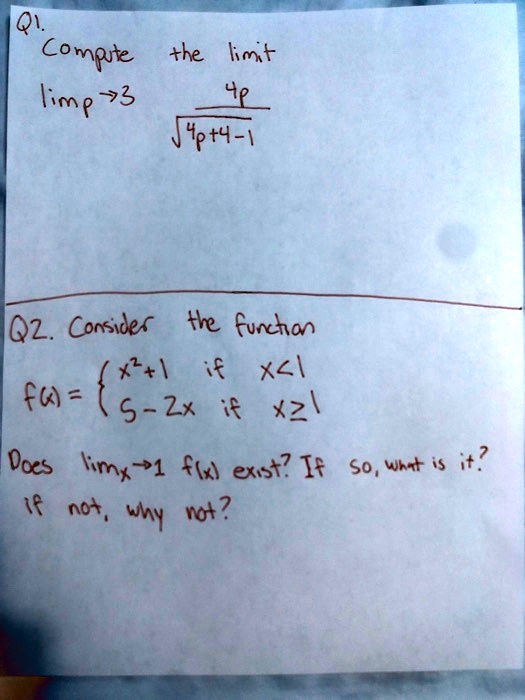 Q1.
Compute the limit
lim p→3 4p
√4p+4-1
Q2. Consider the function
x²+1 if x<1
f(x) = {
5-2x if x≥1
Does limx→1 f(x) exist? If so, what is it?
if not, why not?